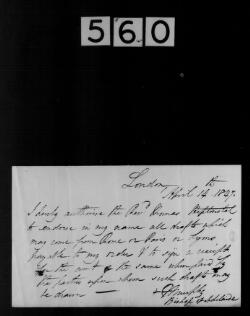 560
London
April 14th 1847.
I hereby authorise the Revd Thomas
to endorse in my name all drafts which
may come from Rome or Paris or Lyons,
payable to my order & to sign a receipt
for the amt of the same when paid by
the parties upon whom such drafts may
be drawn
+ Murphy
Bishop of Adelaide